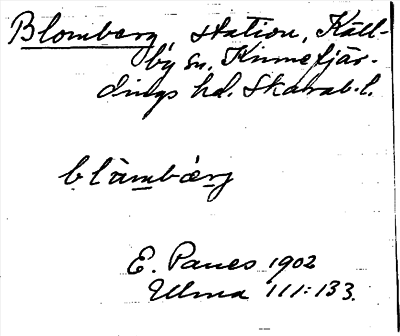 Blomberg, station, Käll-
by sn. Kinnefjär-
dings hd. Skarab.l.
blåmbærg
E. Panes 1902
Ulma 111:133.